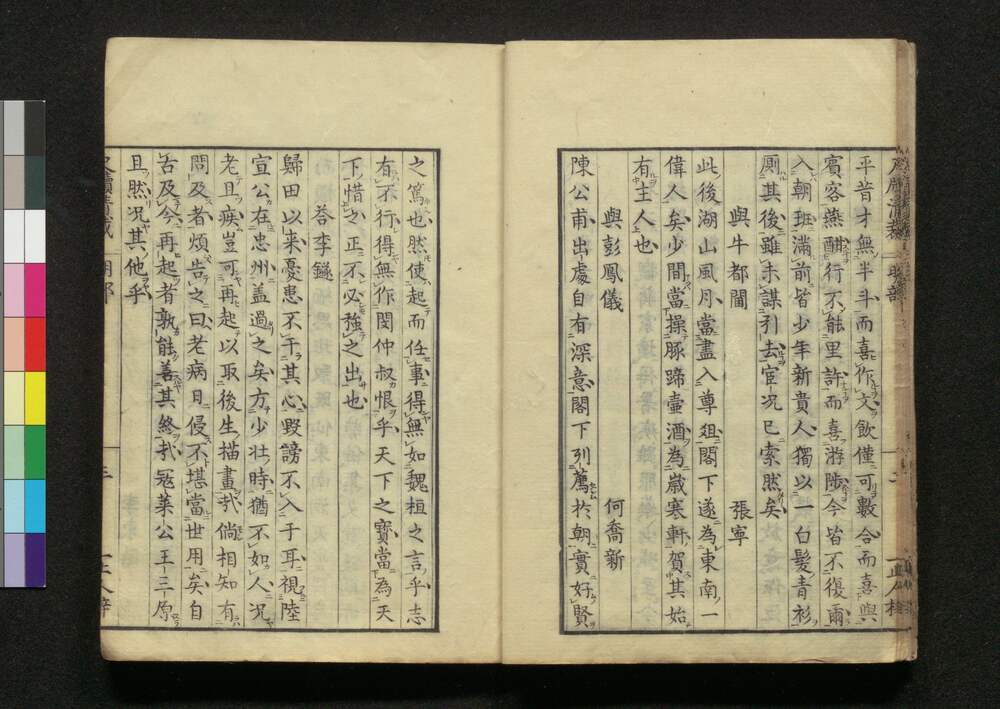 平昔才無半斗而喜作文飲僅可數合而喜與
賓客燕酣行不能里許而喜游陟今皆不復爾
入朝班滿前皆少年新貴人獨以一白髮青衫
厠其後雖未謀引去宦况已索然矣
與牛都閫 張寧
此後湖山風月當盡入尊俎閣下遂為東南一
偉人矣少間當操豚蹄壷酒為歳寒軒賀其始
有主人也
與彭鳳儀 何喬新
陳公甫出處自有深意閣下列薦於朝實好賢
之篤也然使起而任事得無如魏桓之言乎志
有不行得無作閔仲叔恨乎天下之寶當為天
下惜之正不必強之出也
荅李鐩
歸田以來憂患不干其心毀謗不入于耳視陸
宣公在忠州盖過之矣方少壮時猶不如人况
老且疾豈可再起以取後生描畫哉倘相知有
問及者煩告之曰老病日侵不堪當世用矣自
古及今再起者孰能善其終哉冦莱公王三原
且然况其他乎